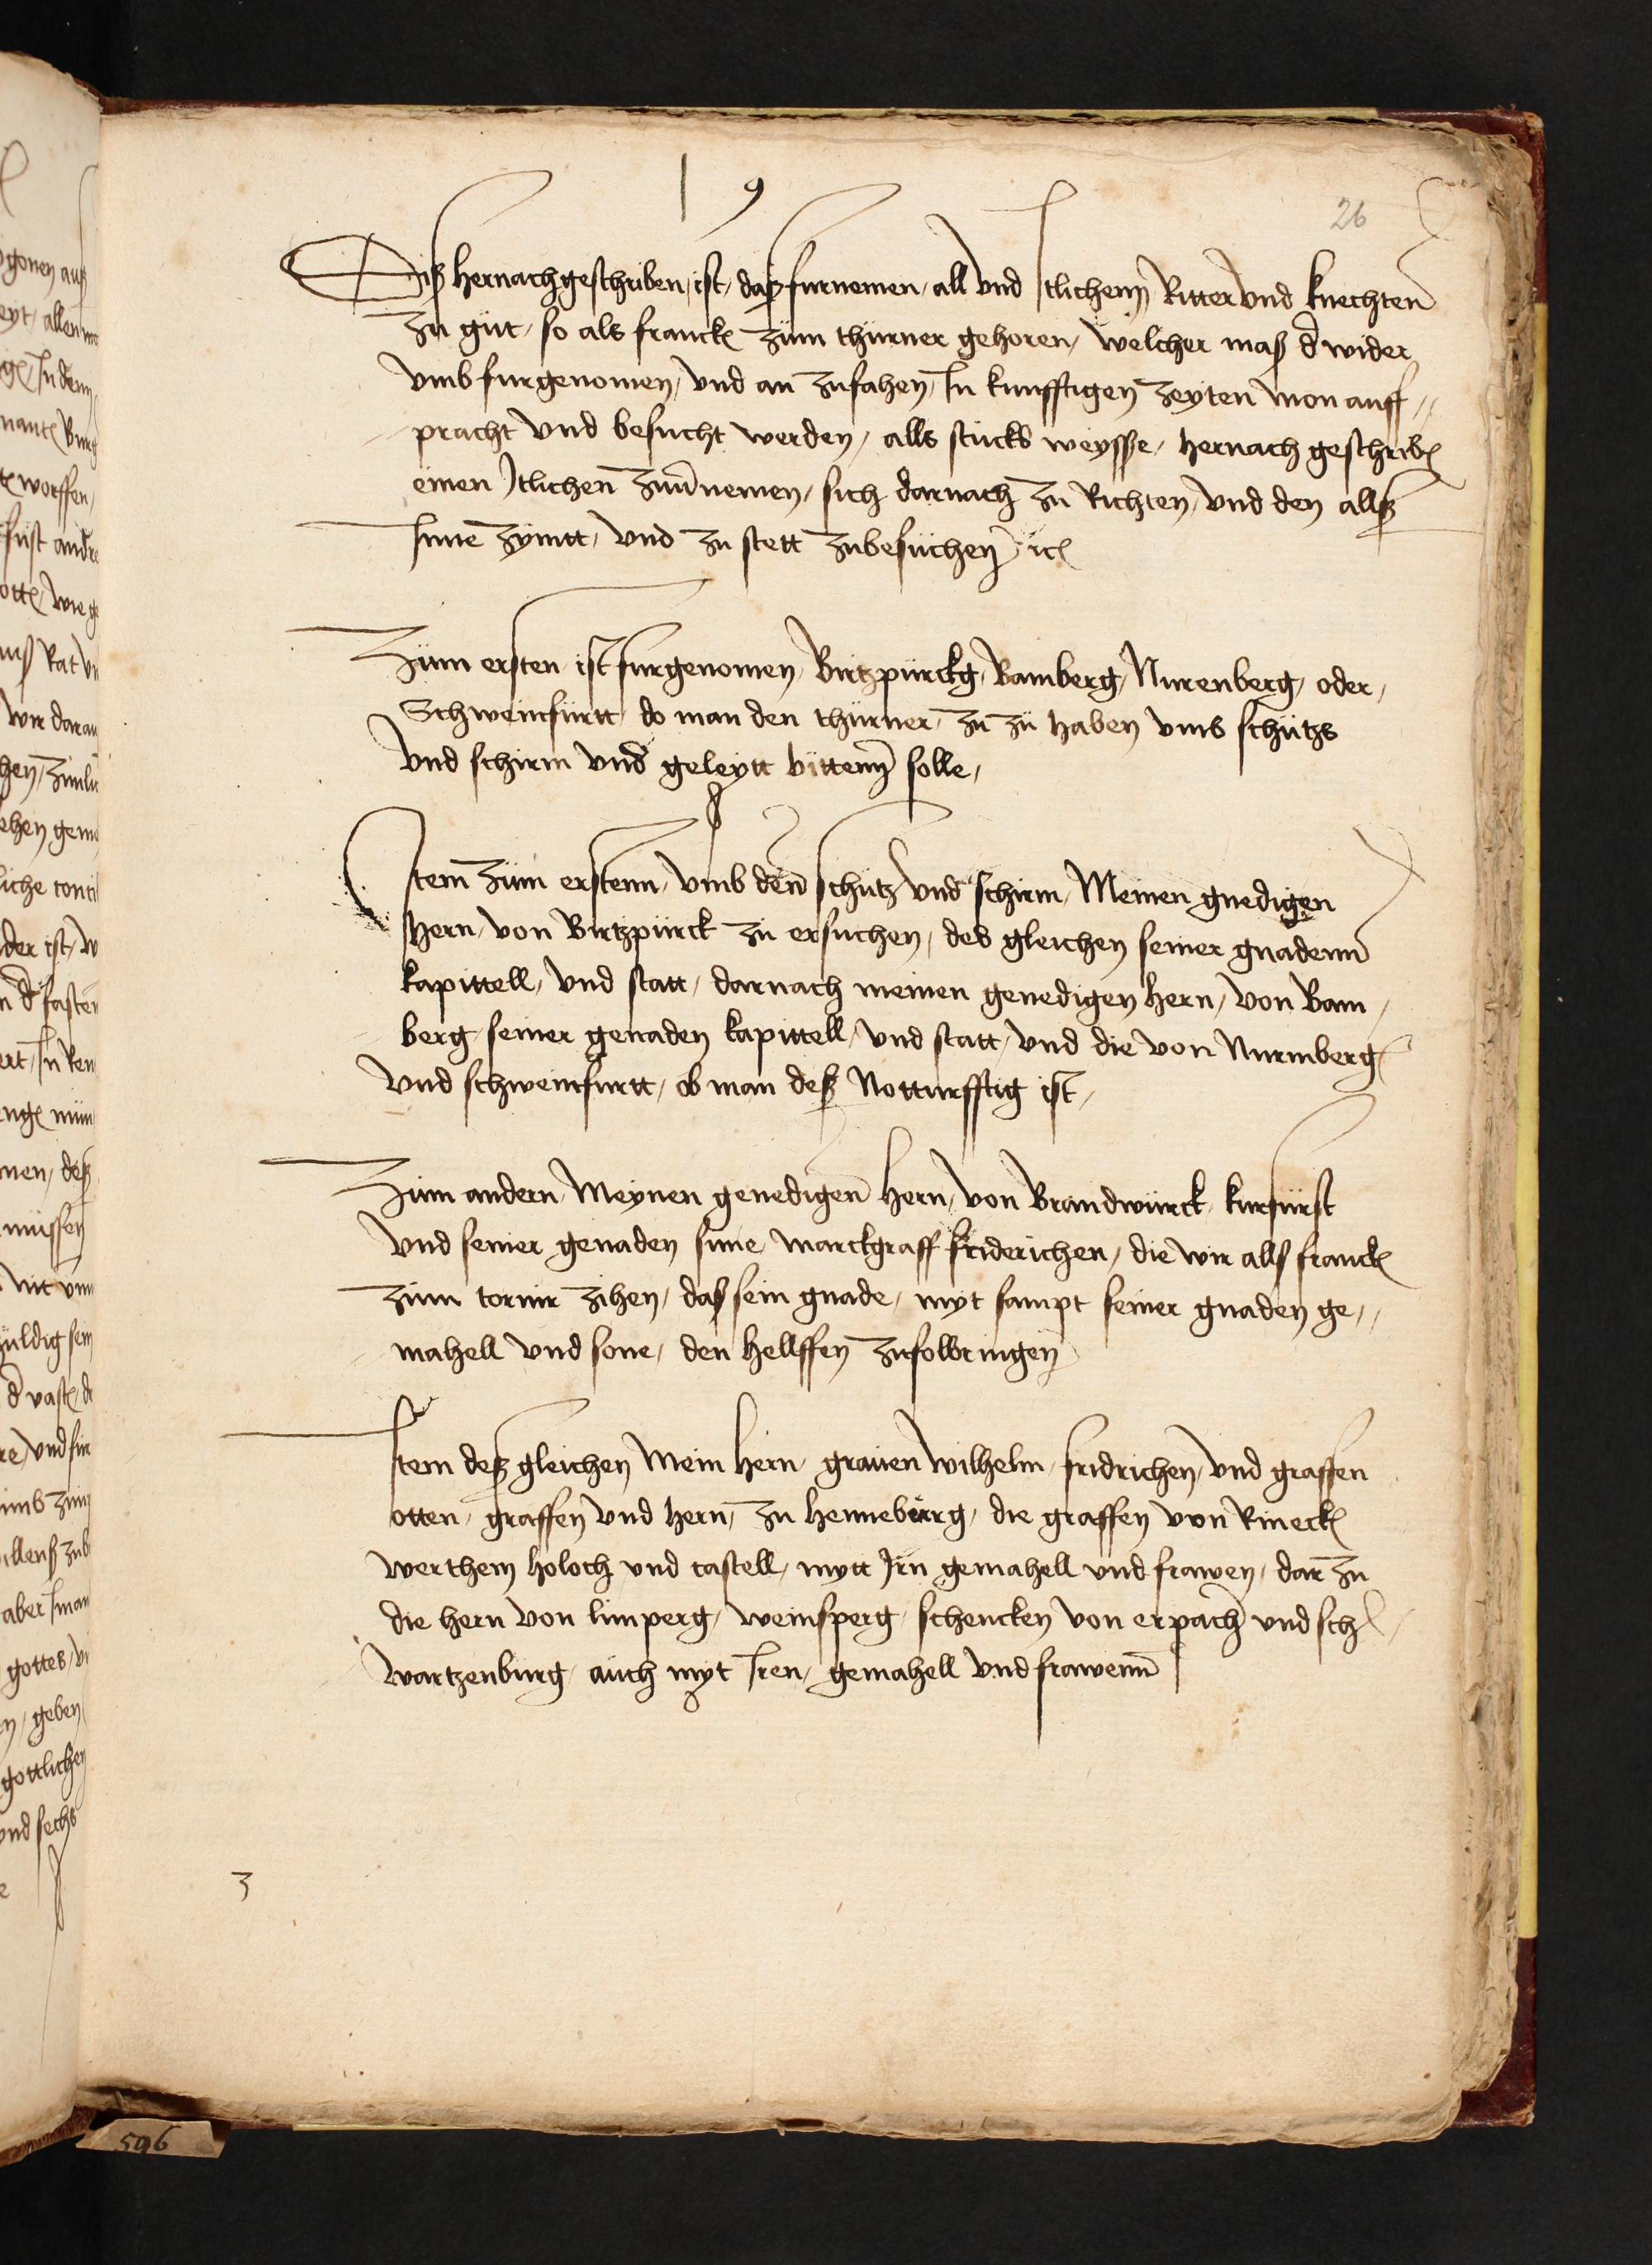 19
26
Diß hernachgeschriben, ist, daß furnemen, all vnd Itlichenn Ritter vnd knechten
zu gut, so als franck zum thurner gehoren, welcher maß d wider
vmb furgenomen, vnd an zufahen, In kunfftigen zeyten mon auff
pracht vnd besucht werden, alls stucks weysse, hernach geschrib
einen Itlichen zuuernemen, sich darnach zu Richten, vnd den allß
Inne zymtt, vnd zu stett zubesuchen, ic
Zum ersten ist furgenomen, Birtzpurckg, Bamberg, Nurenberg, oder,
Schweinfurtt, do man den thurner, zu zu haben vmb schutzs
vnd schirm vnd geleytt bittenn solle,
Item zum erstenn, vmb den schutz vnd schirm, Meinen gnedigen
Hern, von Birtzpurck zu ersuchen, des gleichen seiner gnadenn
kapittell, vnd statt, darnach meinen genedigen Hern, von Bam
berg, seiner genaden kapittell, vnd statt, vnd die von Nurmberg
vnd schweinfurtt, ob man deß Notturfftig ist,
Zum andern, Meynen genedigen Hern, von Brandwurck, kurfurst
vnd seiner genaden sune, marckgraff friderichen, die wir alls franck
zum tornir zihen, das sein gnade, myt sampt seiner gnaden ge
mahell vnd sone, den hellffen zufolbringen
Item deß gleichen Mein Hern, grauen Wilhelm, fridrichen, vnd graffen
otten, graffen vnd hern, zu Henneburg, die graffen von Rineck
werthem holoch vnd castell, mytt Irn gemahell vnd frawen, dar zu
die hern von limperg, weinsperg, schencken von erpach vnd sch
wartzenburg, auch myt Iren, gemahell vnd frawenn
3
596